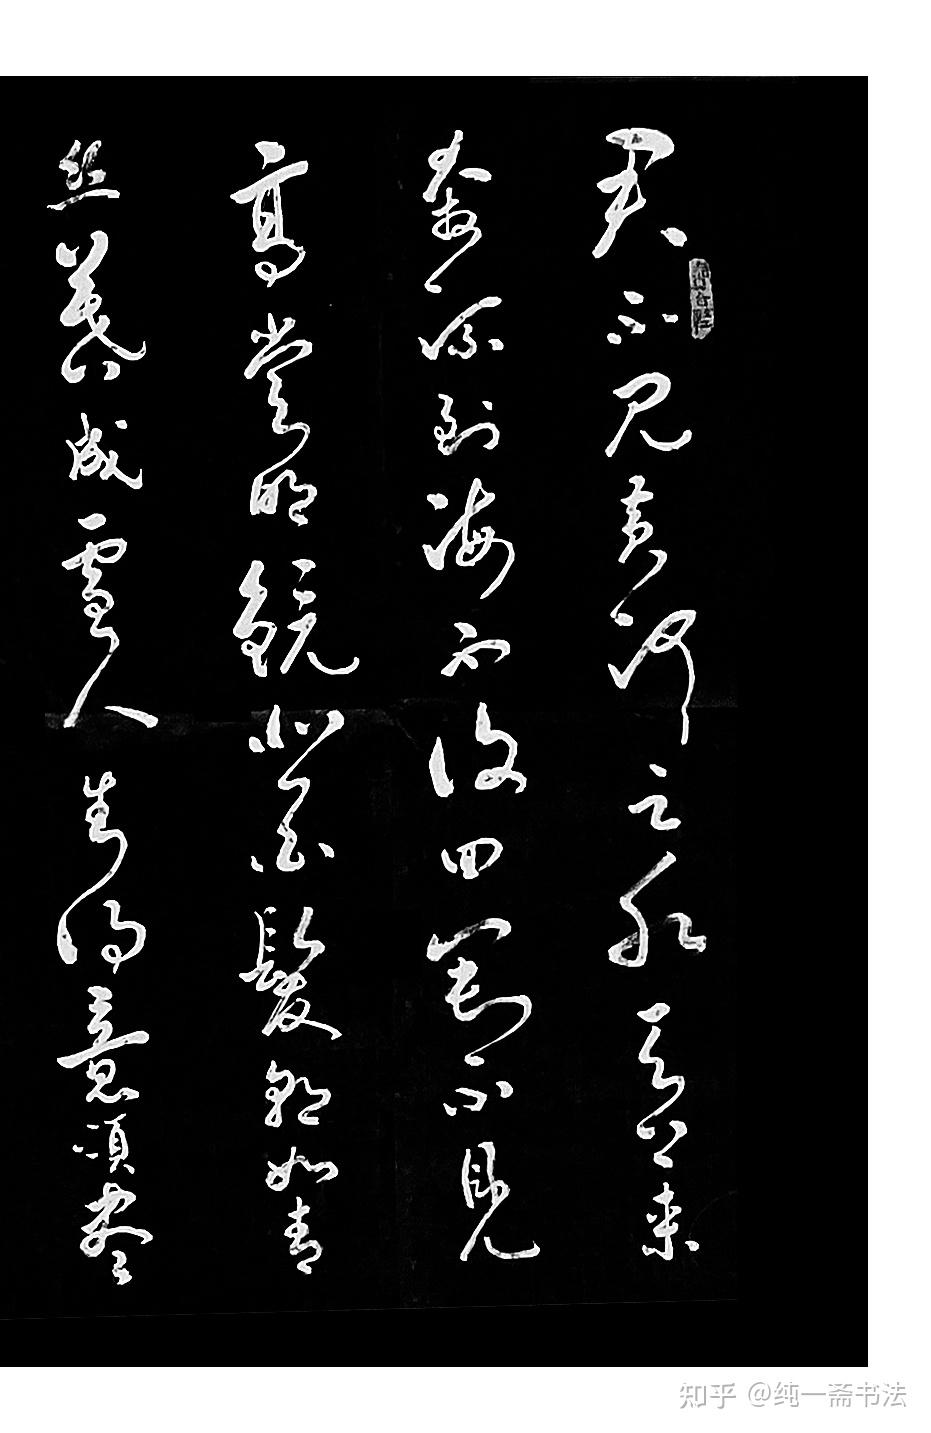 君不見黄河之水天上来
奔流到海不復回君不見
高堂明鏡悲白髮朝如青
丝暮成雪人生得意須盡
知乎 @纯一斋书法